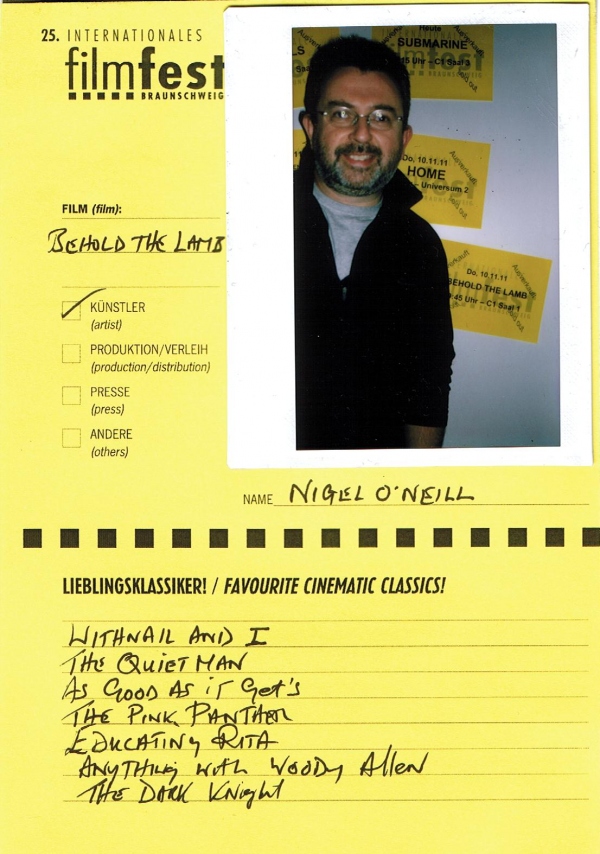 25. INTERNATIONALES
filmfest
BRAUNSCHWEIG
FILM (film):
BEHOLD THE LAMB
KÜNSTLER
(artist)
PRODUKTION/VERLEIH
(production/distribution)
PRESSE
(press)
ANDERE
(others)
LS
Heute
SUBMARINE
15 Uhr - C1 Saal 3
Ausverkauft
sold out
Do, 10.11.11
HOME
- Universum 2
Ausverkauft
sold out
Do, 10.11.11
BEHOLD THE LAMB
:45 Uhr - C1 Saal 1
Ausverkauft
sold out
NAME NIGEL O'NEILL
LIEBLINGSKLASSIKER! / FAVOURITE CINEMATIC CLASSICS!
WITHNAIL AND I
THE QUIET MAN
AS GOOD AS iT GET'S
THE PINK PANTHER
EDUCATING RITA
ANYTHING WITH WOODY Allen
THE DARK KNIGHT